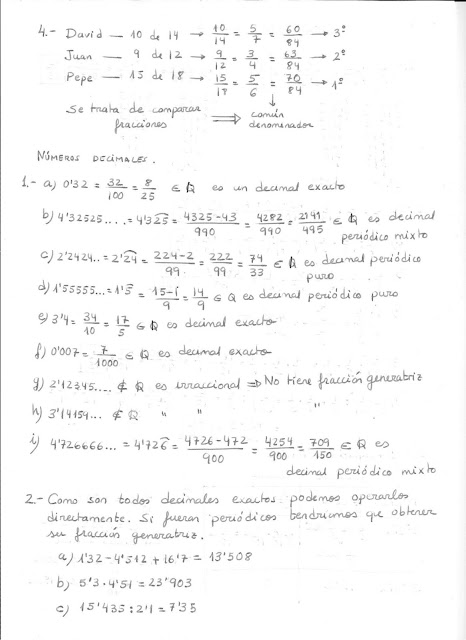 4.- David — 10 de 14 → 10/14 = 5/7 = 60/84 → 3º
Juan — 9 de 12 → 9/12 = 3/4 = 63/84 → 2º
Pepe — 15 de 18 → 15/18 = 5/6 = 70/84 → 1º
↓
Se trata de comparar fracciones ⟹ común denominador
NÚMEROS DECIMALES.
1.- a) 0'32 = 32/100 = 8/25 ∈ Q es un decimal exacto
b) 4'32525.... = 4'3\overline{25} = 4325-43/990 = 4282/990 = 2141/495 ∈ Q es decimal
periódico mixto
c) 2'2424.. = 2'\overline{24} = 224-2/99 = 222/99 = 74/33 ∈ Q es decimal periódico
puro
d) 1'55555... = 1'\overline{5} = 15-1/9 = 14/9 ∈ Q es decimal periódico puro
e) 3'4 = 34/10 = 17/5 ∈ Q es decimal exacto
f) 0'007 = 7/1000 ∈ Q es decimal exacto
g) 2'12345.... ∉ Q es irracional ⟹ No tiene fracción generatriz
h) 3'14159... ∉ Q " " "
i) 4'726666... = 4'72\overline{6} = 4726-472/900 = 4254/900 = 709/150 ∈ Q es
decimal periódico mixto
2.- Como son todos decimales exactos podemos operarlos
directamente. Si fueran periódicos tendríamos que obtener
su fracción generatriz.
a) 1'32 - 4'512 + 16'7 = 13'508
b) 5'3 · 4'51 = 23'903
c) 15'435 : 2'1 = 7'35